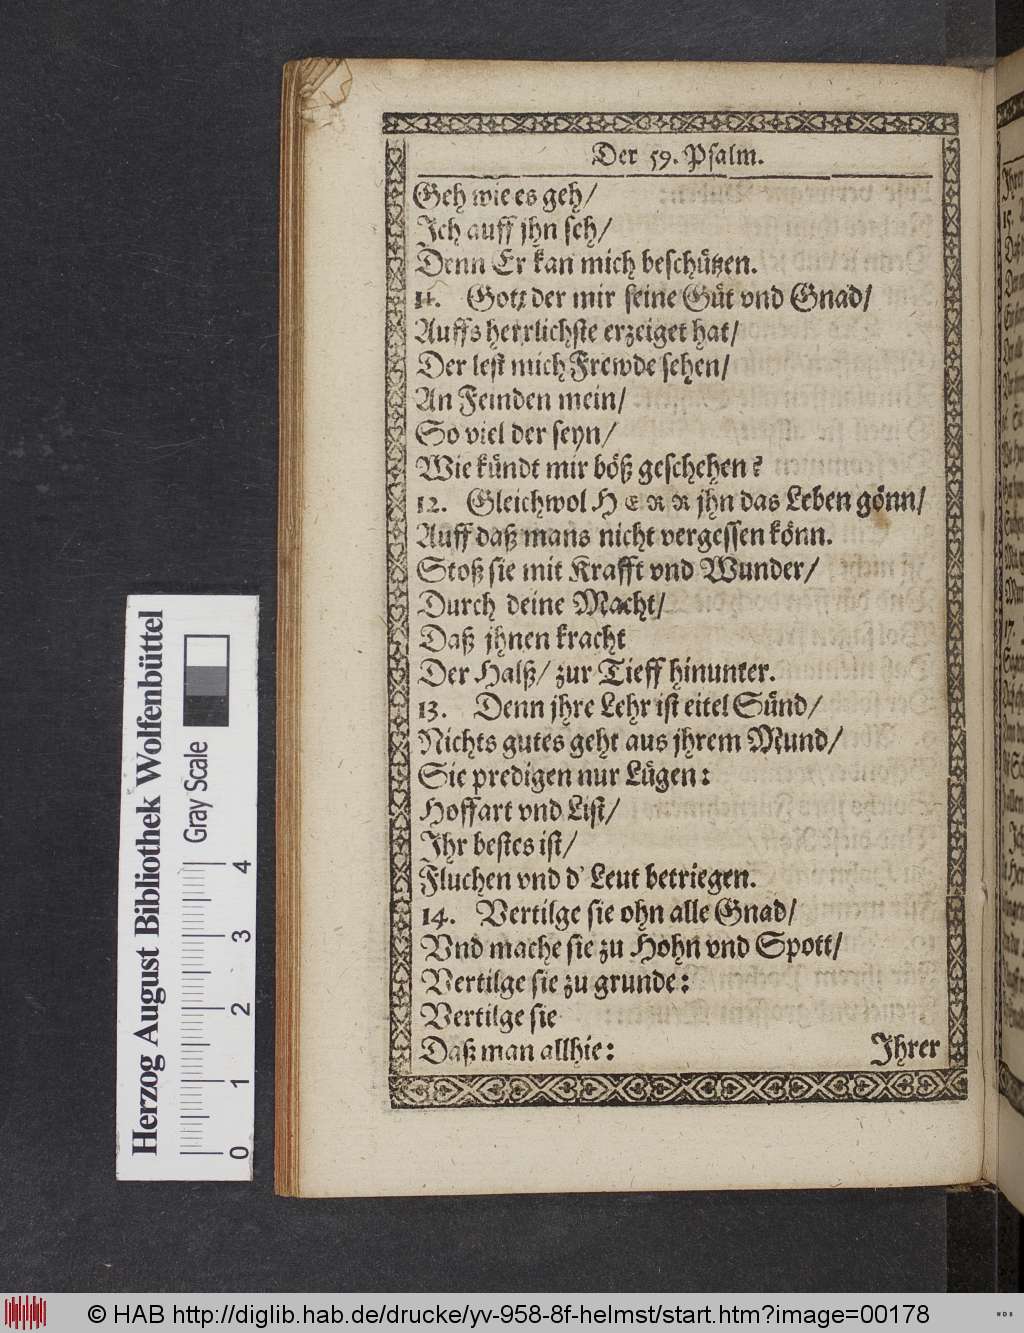 Der 59. Psalm.
Geh wie es geh/
Ich auff jhn seh/
Denn Er kan mich beschützen.
11. Gott der mir seine Güt vnd Gnad/
Auffs herrlichste erzeiget hat/
Der lest mich Frewde sehen/
An Feinden mein/
So viel der seyn/
Wie kündt mir böß geschehen?
12. Gleichwol HERR jhn das Leben gönn/
Auff daß mans nicht vergessen könn.
Stoß sie mit Krafft vnd Wunder/
Durch deine Macht/
Daß jhnen kracht
Der Halß/ zur Tieff hinunter.
13. Denn jhre Lehr ist eitel Sünd/
Nichts gutes geht aus jhrem Mund/
Sie predigen nur Lügen:
Hoffart vnd List/
Ihr bestes ist/
Fluchen vnd d' Leut betriegen.
14. Vertilge sie ohn alle Gnad/
Vnd mache sie zu Hohn vnd Spott/
Vertilge sie zu grunde:
Vertilge sie
Daß man allhie:
Ihrer
Herzog August Bibliothek Wolfenbüttel
Gray Scale
0 1 2 3 4
© HAB http://diglib.hab.de/drucke/yv-958-8f-helmst/start.htm?image=00178